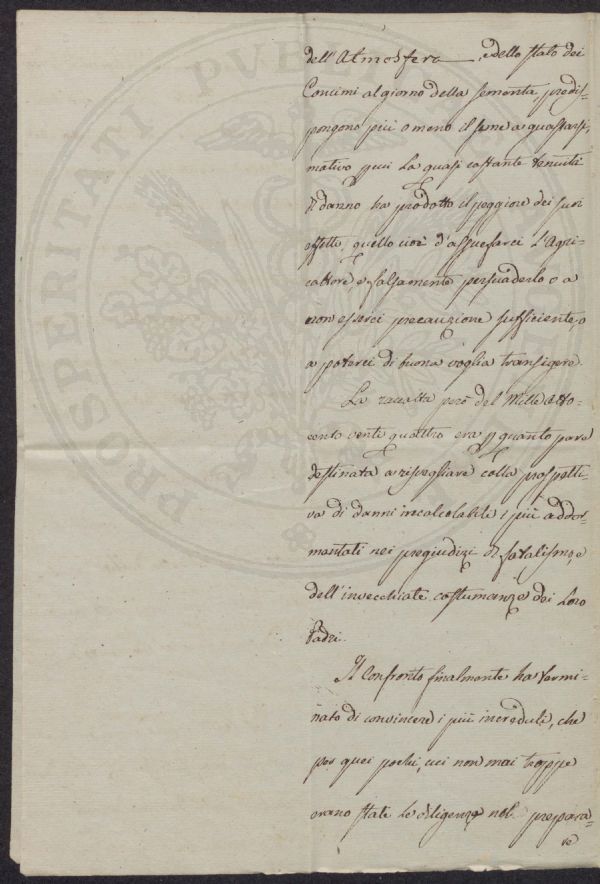 dell'Atmosfera, e dello stato dei
Concimi al giorno della sementa predis-
pongono più o meno il seme a guastarsi,
motivo p cui la quasi costante tenuità
di danno ha prodotto il peggiore dei suoi
effetti, quello cioè d'assuefarci l'Agri-
coltore, e falsamente persuaderlo o a
non esserci precauzione sufficiente, o
a poterci di buona voglia transigere.
La raccolta però del Mille otto-
cento vente quattro era p quanto pare
destinata a risvegliare colla prospetti-
va di danni incalcolabili i più addor-
mentati nei pregiudizi di fatalismo, e
dell'invecchiate costumanze dei Loro
Padri.
Il Confronto finalmente ha termi-
nato di convincere i più increduli, che
per quei pochi, cui non mai troppe
erano state le diligenze nel prepara-
re
PROSPERITATI PVBLICAE